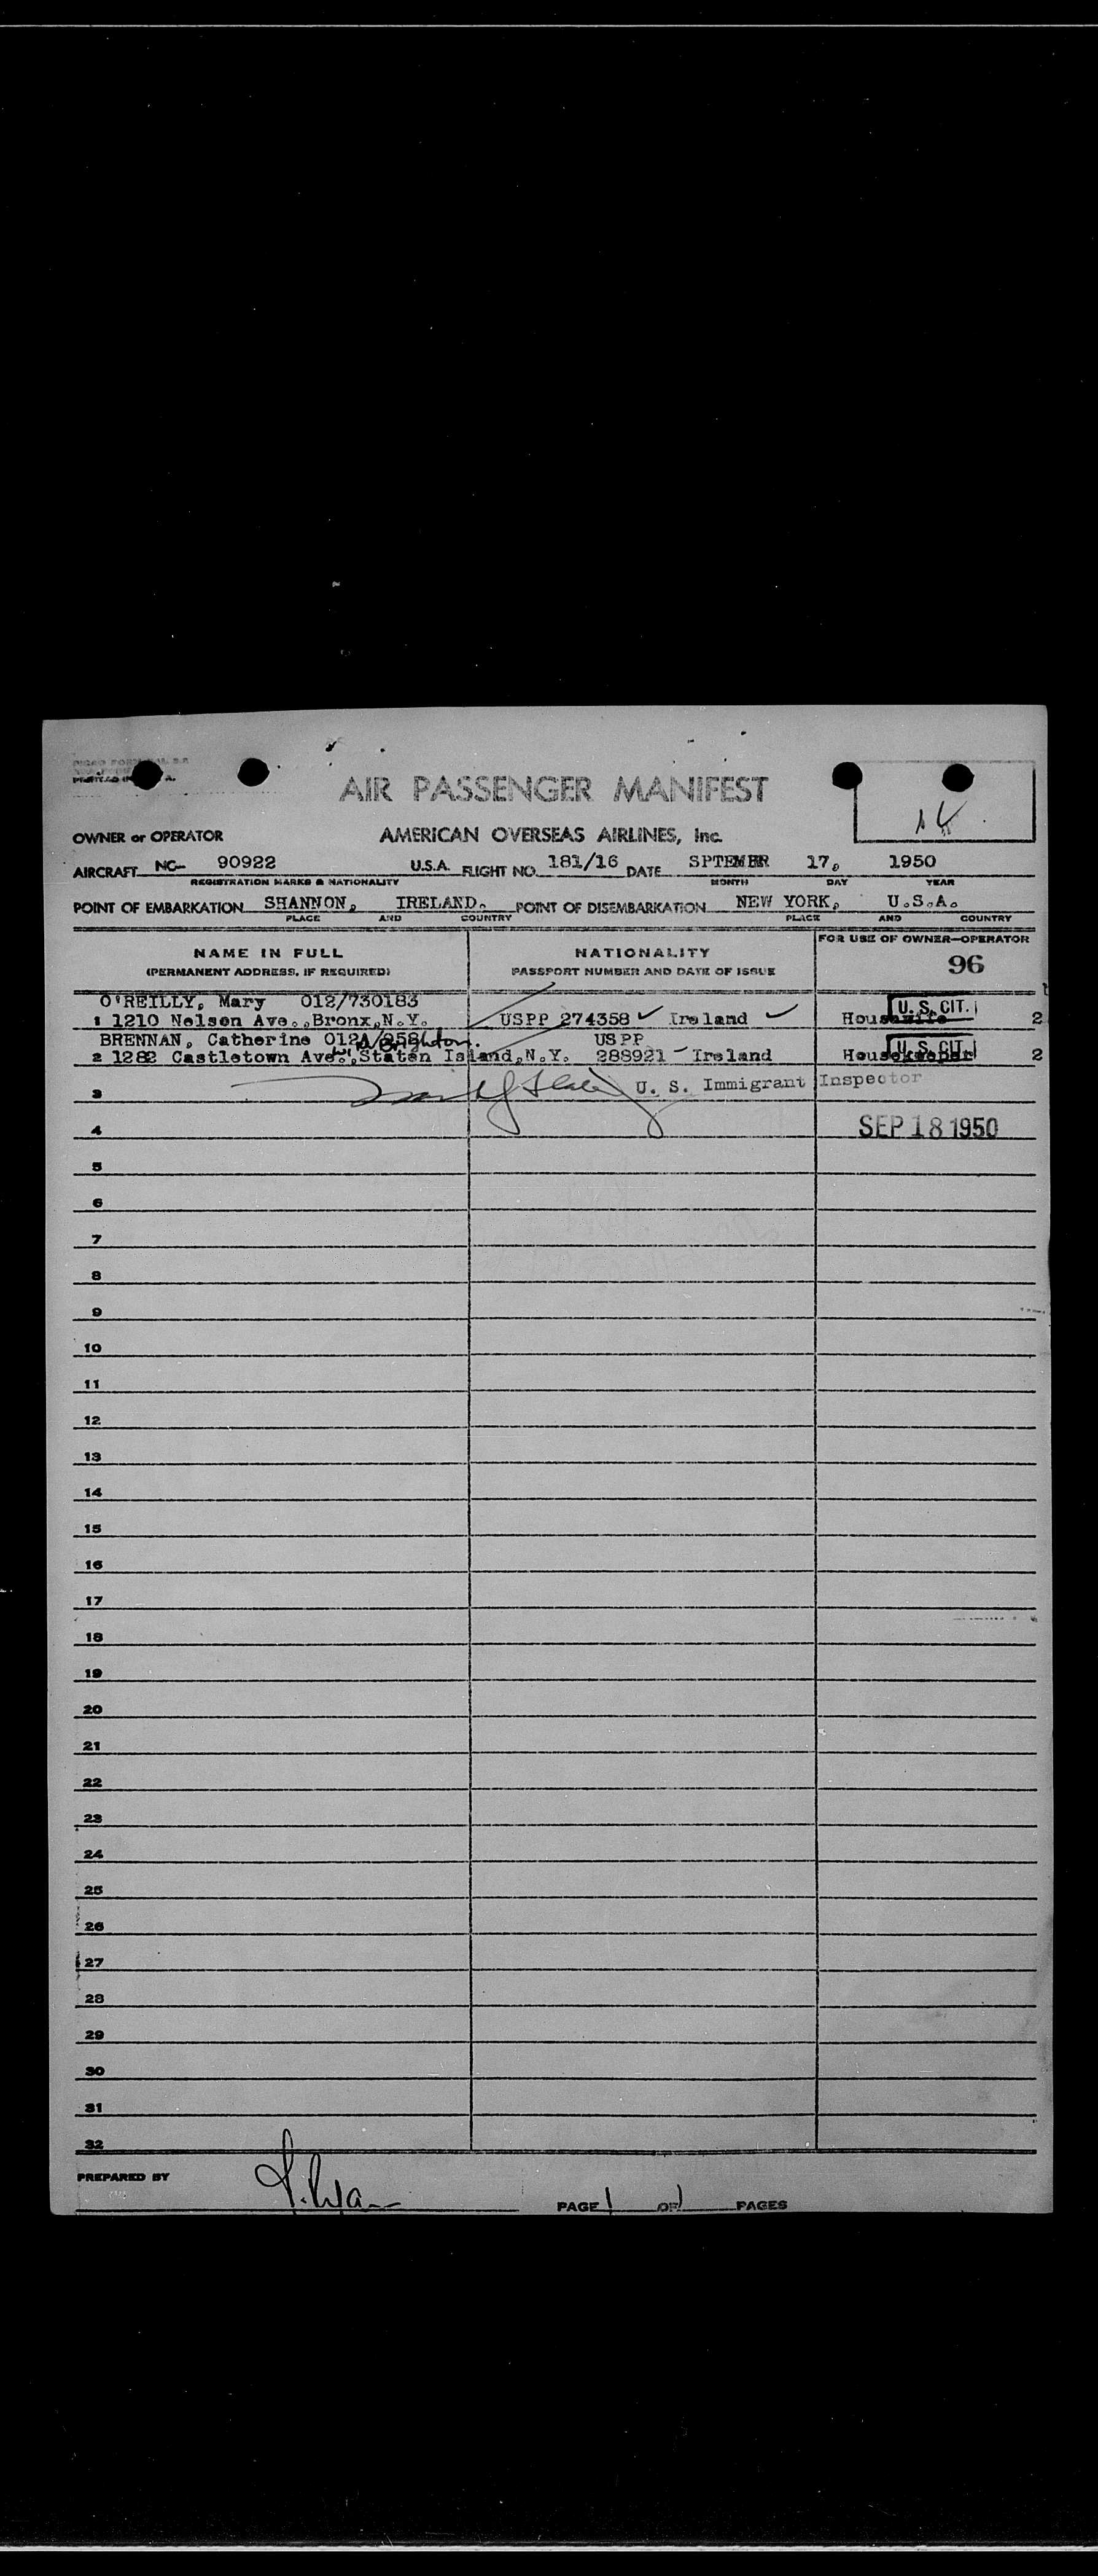 AIR PASSENGER MANIFEST
14
OWNER or OPERATOR AMERICAN OVERSEAS AIRLINES, Inc.
AIRCRAFT NC- 90922 U.S.A. FLIGHT NO. 181/16 DATE SPTEMBER 17, 1950
REGISTRATION MARKS & NATIONALITY MONTH DAY YEAR
POINT OF EMBARKATION SHANNON, IRELAND. POINT OF DISEMBARKATION NEW YORK, U.S.A.
PLACE AND COUNTRY PLACE AND COUNTRY
NAME IN FULL NATIONALITY FOR USE OF OWNER-OPERATOR
(PERMANENT ADDRESS, IF REQUIRED) PASSPORT NUMBER AND DATE OF ISSUE 96
O'REILLY, Mary 012/730183 U.S. CIT.
1 1210 Nelson Ave., Bronx, N.Y. USPP 274358 ✓ Ireland ✓ Housewife 2
BRENNAN, Catherine Brighton. USPP U.S. CIT.
2 1282 Castletown Ave., Staten Island, N.Y. 288921 - Ireland Housekeeper 2
3 U. S. Immigrant Inspector
4 SEP 18 1950
5
6
7
8
9
10
11
12
13
14
15
16
17
18
19
20
21
22
23
24
25
26
27
28
29
30
31
32
PREPARED BY
PAGE 1 OF 1 PAGES